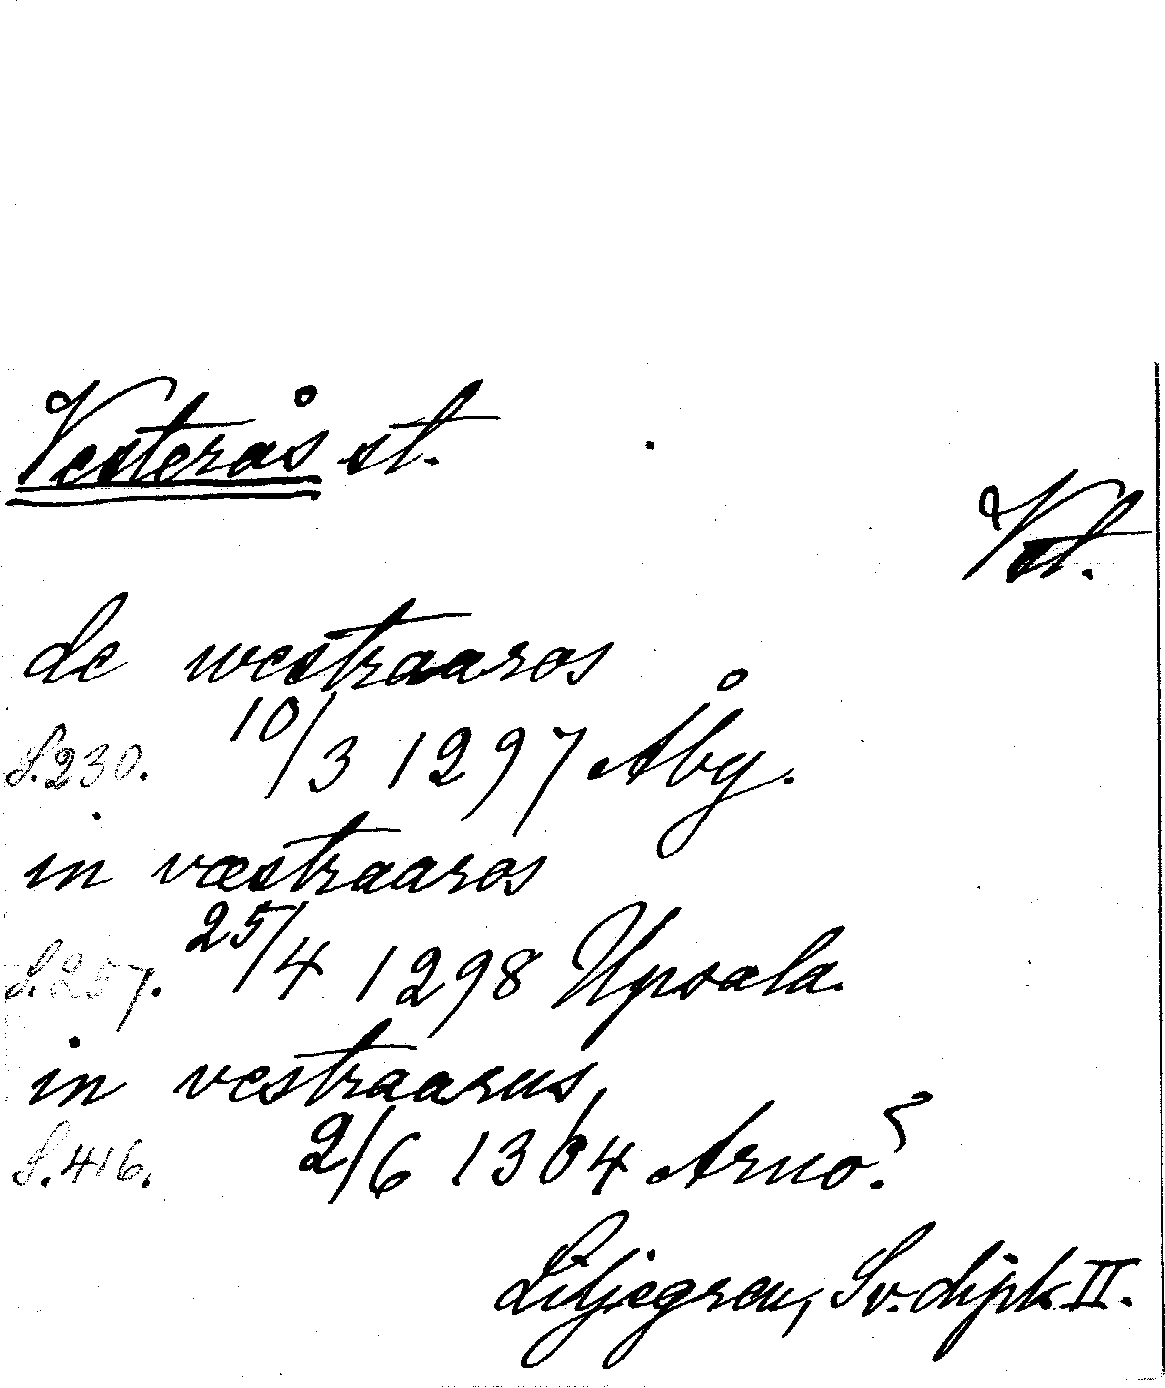 Vesterås st.
Vst.
de westraaros
S. 230. 10/3 1297 Åbg.
in væstraaros
S. 257. 25/4 1298 Upsala.
in vestraarus
S. 416. 2/6 1304 Arno?
Liljegren, Sv. dipl. II.